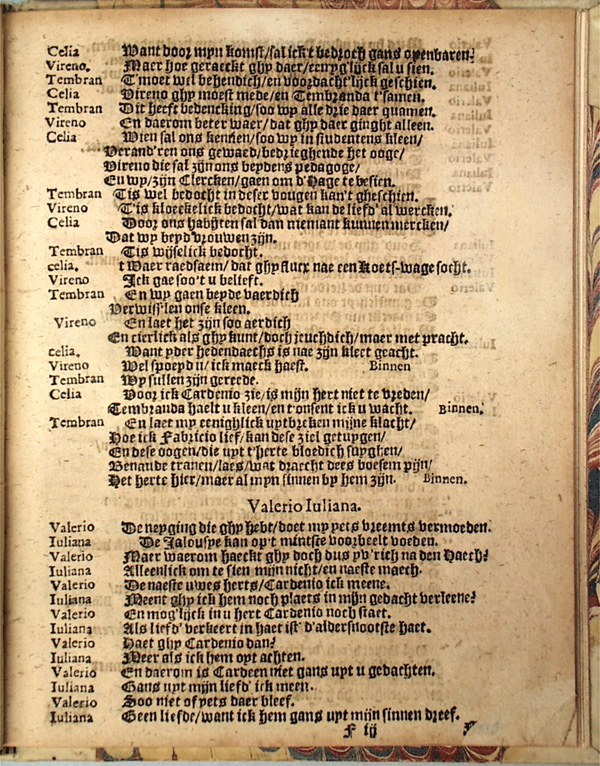 Celia Want door mijn komst/sal ick t bedroch gans openbaren?
Vireno. Maer hoe geraeckt ghy daer/eenyg'lijck sal u sien.
Tembran T'moet wel behendich/en voordacht'lijck geschien.
Celia Vireno ghy moest mede/en Tembranda t'samen.
Tembran Dit heeft bedencking/soo wy alle drie daer quamen.
Vireno En daerom beter waer/dat ghy daer ginght alleen.
Celia Wien sal ons kennen/soo wy in studentens kleen/
Verand'ren ons gewaed/bedrieghende het ooge/
Vireno die sal zijn ons beydens pedagoge/
En wy/zijn Clercken/gaen om d'Hage te besien.
Tembran Tis wel bedocht in deser vougen kan't gheschien.
Vireno T'is kloeckelick bedocht/wat kan de liefd' al wercken.
Celia Door ons habijten sal dan niemant kunnen mercken/
Dat wy beyd vrouwen zijn.
Tembran Tis wijselick bedocht.
celia. t Waer raedsaem/dat ghy flucx nae een Koets-wage socht.
Vireno Ick gae soo't u belieft.
Tembran En wy gaen beyde vaerdich
Verwiss'len onse kleen.
Vireno En laet het zijn soo aerdich
En cierlick als ghy kunt/doch jeuchdich/maer met pracht.
celia. Want yder hedendaechs is nae zijn kleet geacht.
Vireno Wel spoepd u/ick maeck haest. Binnen
Tembran Wy sullen zijn gereede.
Celia Voor ick Cardenio zie/is mijn hert niet te vreden/
Tembranda haelt u kleen/en t'onsent ick u wacht. Binnen.
Tembran En laet my eenighlick uytbreken mijne klacht/
Hoe ick Fabricio lief/kan dese ziel getuygen/
En dese oogen/die uyt t'herte bloedich suyghen/
Benaude tranen/laes/wat draecht dees boesem pijn/
Het herte hier/maer al mijn sinnen by hem zijn. Binnen.
Valerio Iuliana.
Valerio De neyging die ghy hebt/doet my yets vreemts vermoeden.
Iuliana De Jalousye kan op't mintste voorbeelt voeden.
Valerio Maer waerom haeckt ghy doch dus yv'rich na den Haech?
Iuliana Alleenlick om te sien mijn nicht/en naeste maech.
Valerio De naeste uwes herts/Cardenio ick meene.
Iuliana Meent ghy ick hem noch plaets in mijn gedacht verleene?
Valerio En mog'lijck in u hert Cardenio noch staet.
Iuliana Als liefd' verkeert in haet ist' d'aldersnootste haet.
Valerio Haet ghy Cardenio dan?
Iuliana Meer als ick hem oyt achten.
Valerio En daerom is Cardeen niet gans uyt u gedachten.
Iuliana Gans uyt mijn liefd' ick meen.
Valerio Soo niet of yets daer bleef.
Iuliana Geen liefde/want ick hem gans uyt mijn sinnen dreef.
F iij